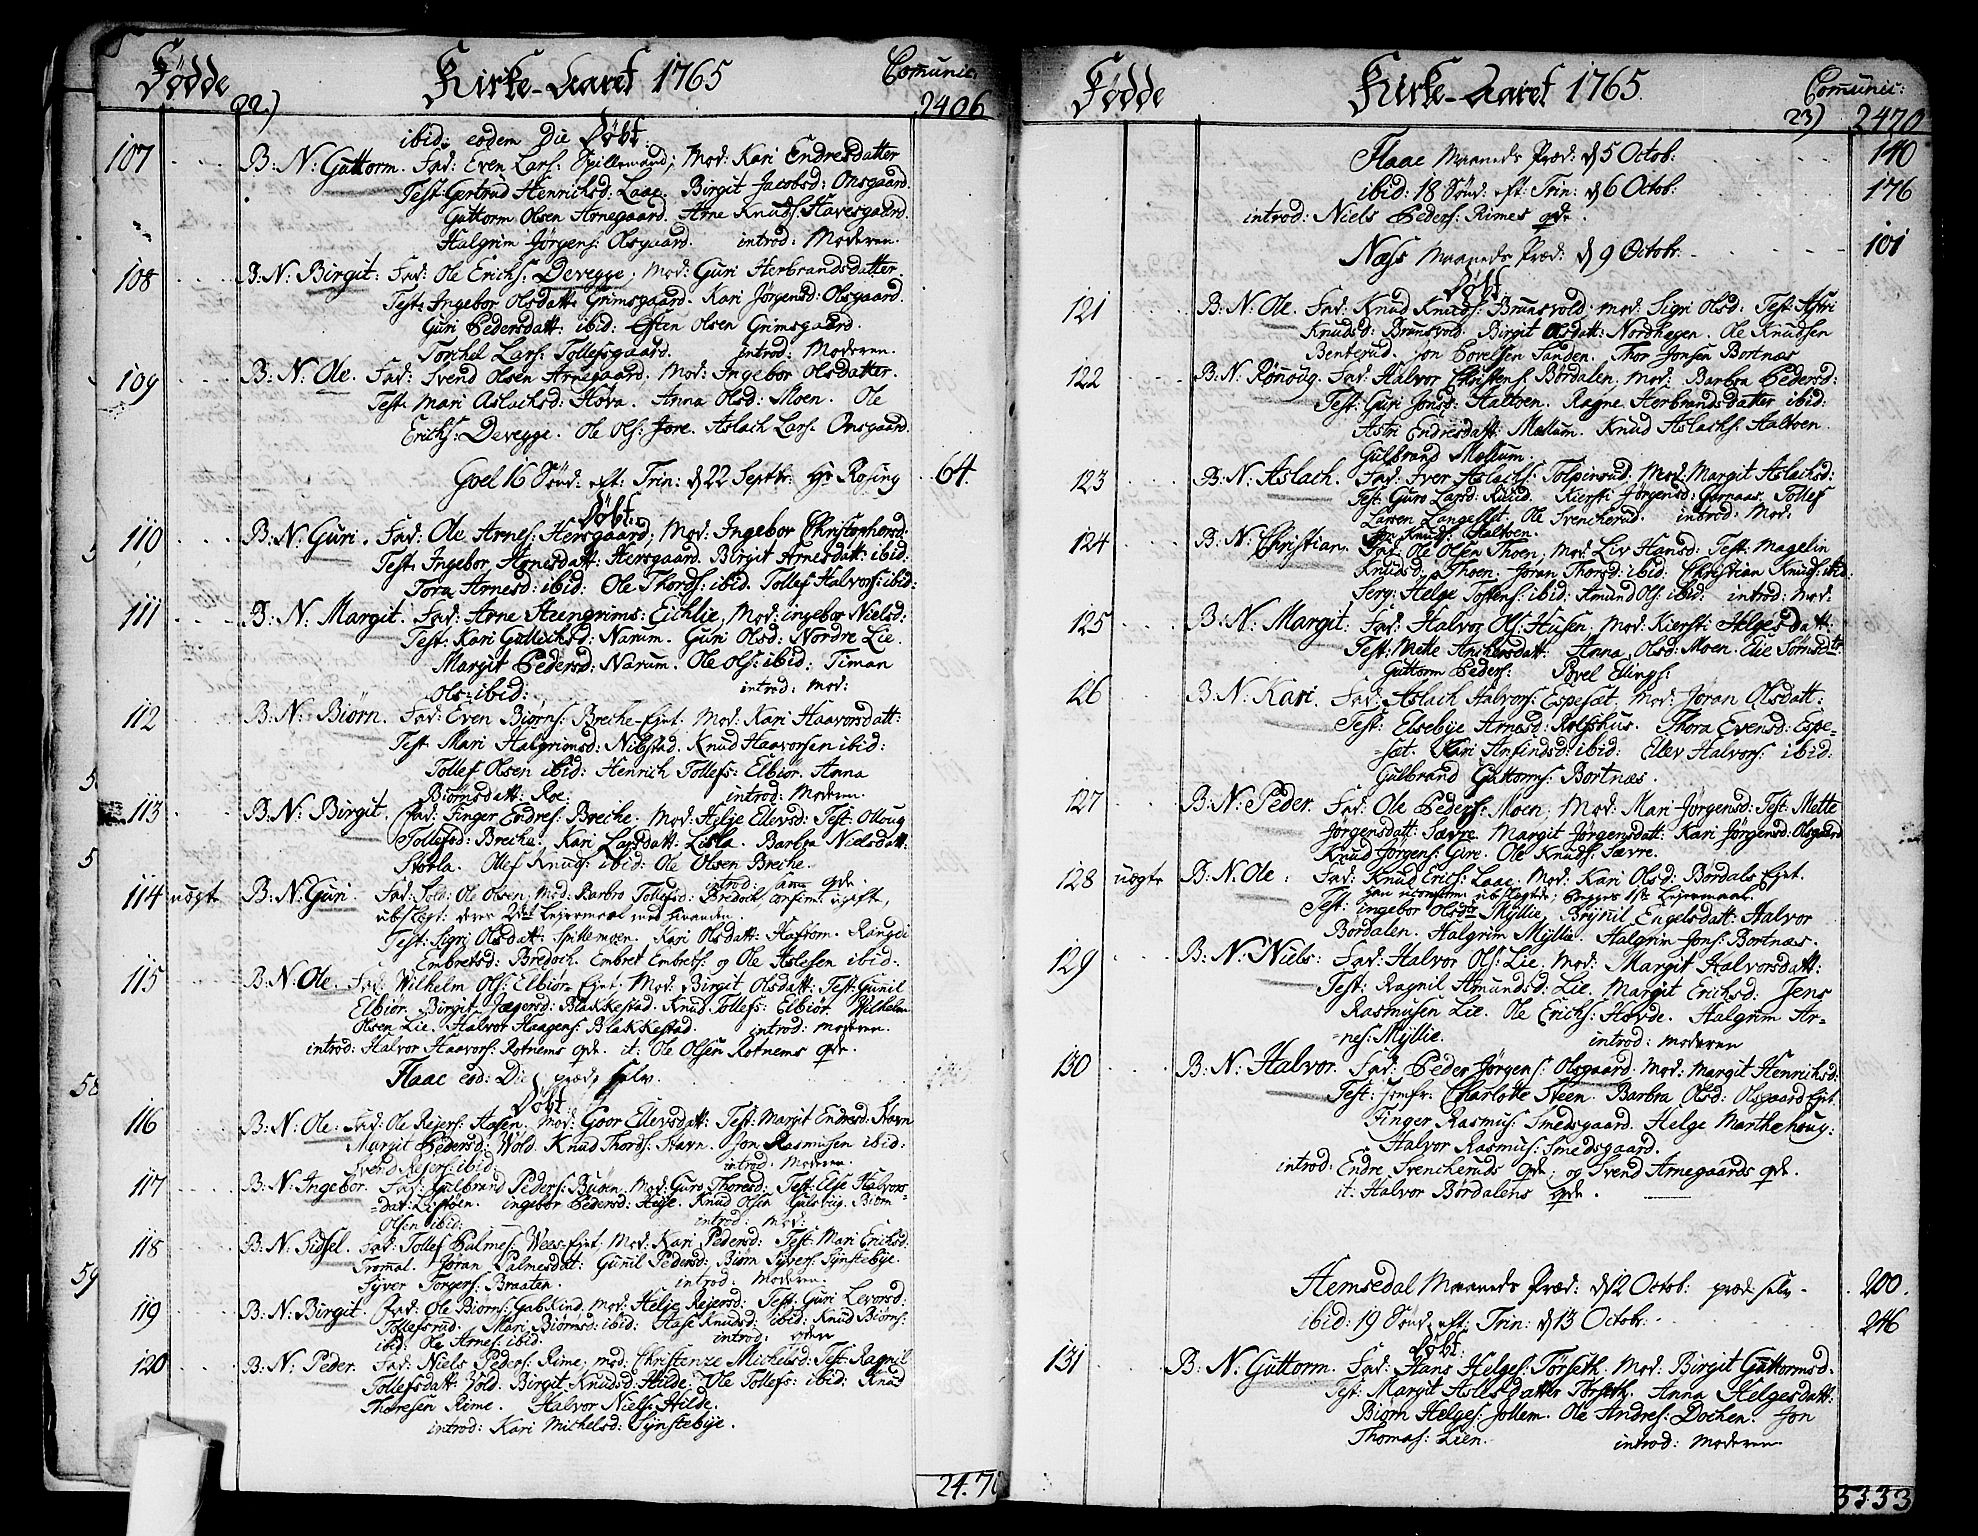 Fødde Kirke-Aaret 1765 Comunic:
22) 2406
ibid: eodem Die Døbt.
107 B: N: Guttorm. Fad: Even Lars: Spillemand; Mod: Kari Endresdatter
Test: Gertrud Henrichsd: Laae. Birgit Jacobsd: Onsgaard.
Guttorm Olsen Arnegaard. Arne Knuds: Havesgaard.
Halgrim Jørgens: Olsgaard. introd: Moderen.
108 B: N: Birgit: Fad: Ole Erichs: Devegge; Mod: Guri Herbrandsdatter.
Test: Ingebor Olsdatt: Grimsgaard. Kari Jørgensd: Olsgaard.
Guri Pedersdatt: ibid: Østen Olsen Grimsgaard.
Torchel Lars: Tollefsgaard. introd: Moderen.
109 B: N: Ole. Fad: Svend Olsen Arnegaard. Mod: Ingebor Olsdatter.
Test: Mari Aslachsd: Hova. Anna Olsd: Moen. Ole
Erichs: Devegge. Ole Ols: Jore. Aslach Lars: Onsgaard.
Goel 16 Sønd: eft: Trin: d 22 Septbr. Hr Rosing 64
Døbt.
110 B: N: Guri. Fad: Ole Arnes: Hersgaard; Mod: Ingebor Christophersd:
Test: Ingebor Arnesdatt: Hersgaard. Birgit Arnesdatt: ibid:
Tora Arnesd: ibid: Ole Thords: ibid. Tollef Halvors: ibid:
111 B: N: Margit. Fad: Arne Steengrims: Eichlie, Mod: ingebor Nielsd:
Test: Kari Gullichsd: Narum. Guri Olsd: Nordre Lie.
Margit Pedersd: Narum. Ole Ols: ibid: Timan
Ols: ibid: introd: Mod:
112 B: N: Biørn. Fad: Even Biørns: Breche-Ejet. Mod: Kari Haavorsdatt:
Test: Mari Halgrimsd: Nibstad. Knud Haavorsen ibid:
Tollef Olsen ibid: Henrich Tollefs: Elbiør. Anna
Biørnsdatt: Roe: introd: Moderen.
113 B: N: Birgit. Fad: Finger Endres: Breche. Mod: Helje Ellevsd: Test: Olloug
Tollefsd: Breche. Kari Larsdatt: Lisla. Barbra Nielsdatt:
Storla. Ollef Knuds: ibid: Ole Olsen Breche.
introd: samme qde.
114 uægte B: N: Guri. Fad: Sold: Ole Olsen, Mod: Barbro Tollefsd: Bredoch, confirm: ugifte,
ubeslegt: deres 2det Lejermaal med hinanden.
Test: Sigri Olsdatt: Spillemoen. Kari Olsdatt: Rangdi
Embretsd: Bredoch. Embret Embrets: og Ole Aslesen ibid:
115 B: N: Ole. Fad: Wilhelm Ols: Elbiør-Ejet: Mod: Birgit Olsdatt: Test: Gunil
Elbiør. Birgit Jægersd: Blakkestad. Knud Tollefs: Elbiør. Wilhelm
Olsen Lie. Halvor Haagens: Blakkestad. introd: moderen.
introd: Halvor Haavors: Rotnems qde. it: Ole Olsen Rotnems qde.
Flaae eod: Die, præd: selv.
Døbt
116 B: N: Ole. Fad: Ole Rejers: Hasen. Mod: Goor Ellevsdatt: Test: Margit Endresd: Stavn
Margit Pedersd: Wold. Knud Thords: Stavn. Jon Rasmusen ibid:
Svend Rejers: ibid: introd: Moderen.
117 B: N: Ingebor. Fad: Gulbrand Peders: Buøen. Mod: Guro Thoresd: Test: Else Halvors-
-dat: Listøen. ingebor Pedersd: Knud Olsen Gulsvig. Biørn
Olsen ibid: introd: Mod:
118 B: N: Sidsel. Fad: Tollef Palmes: Wees-Ejet; Mod: Kari Pedersd: Test: Mari Ericksd:
Trommal. Jøran Palmesdat: Gunil Pedersd: Biørn Syvers: Synstebye.
Syver Torgers: Braaten. introd: Moderen.
119 B: N: Birgit. Fad: Ole Biørns: Gabkind. Mod: Helje Rejersd: Test: Guri Levorsd:
Tollefsrud. Mari Biørnsd: ibid: Aase Knudsd: ibid: Knud Biørns:
ibid: Ole Arnes: ibid: introd:
120 B: N: Peder. Fad: Niels Peders: Rime, mod: Christenze Michelsd: Test: Ragnil
Tollefsdatt: Vold. Birgit Knudsd: Hilde. Ole Tollefs: ibid: Knud
Thoresen Rime. Halvor Niels: Hilde.
introd: Kari Michelsd: Synstebye.
24.70
Fødde Kirke-Aaret 1765. Comunic:
23) 2470
Flaae Maaneds Præd: d 5 Octob: 140
ibid: 18 Sønd: eft: Trin: d 6 Octob: 176
introd: Niels Peders: Rimes qde.
Næss Maaneds Præd: d 9 Octobr. 101
Døbt
121 B: N: Ole. Fad: Knud Knuds: Brunsvold; mod: Sigri Olsd: Test: Astri
Knudsd: Brunsvold. Birgit Olsdatt: Nordhagen. Ole Knudsen
Benterud. Jon Povelsen Sanden. Thor Jonsen Bortnæs
122 B: N: Rønnoug. Fad: Halvor Christens: Børdalen, mod: Barbra Pedersd:
Test: Guri Jonsd: Haltoen. Ragne Herbrandsdatter ibid:
Astri Endresdatt: Mellum. Knud Aslachs: Haltoen.
Gulbrand Mellum.
123 B: N: Aslach. Fad: Iver Aslachs: Tolpinrud. Mod: Margit Aslachsd:
Test: Guro Larsd: Ruud. Kiersti Jørgensd: Garnaas. Tollef
Larsen Langeslet. Ole Svencherud. introd: Mod.
Knuds: Haltoen.
124 B: N: Christian. Fad: Ole Olsen Thoen, Mod: Liv Hansd: Test: Magelin
Knudsd: Thoen. Jøran Thorsd: ibid: Christian Knuds: ibid:
Serg: Helge Tostens: ibid: Amund Ols: ibid: introd: Mod.
125 B: N: Margit. Fad: Halvor Ols: Husen, Mod: Kiersti Helgesdatt:
Test: Mette Anchersdatt: Anna Olsd: Moen. Elie
Guttorm Peders: Povel Ellings:
126 B: N: Kari. Fad: Aslach Halvors: Espeset, Mod: Jøran Olsdatt:
Test: Elsebye Arnesd: Rolfshus. Thora Evensd: Espe-
-sæt. Kari Arfindsd: ibid: Ellev Halvors: ibid:
Gulbrand Guttorms: Bortnæs.
127 B: N: Peder. Fad: Ole Peders: Moen, Mod: Mari Jørgensd: Test: Mette
Jørgensdatt: Sævre. Margit Jørgensdatt: Kari Jørgensd: Olsgaard
Knud Jørgens: Gire. Ole Knuds: Sævre.
128 uægte B: N: Ole: Fad: Knud Erics: Laae. Mod: Kari Olsd: Børdals Ejet.
ubeslegtede, begges 1ste Lejermaal.
Test: ingebor Olsdtr Myllie. Brynil Engelsdatt: Halvor
Børdalen. Halgrim Mylle. Halgrim Jons: Bortnæs.
129 B: N: Niels: Fad: Halvor Ols: Lie, Mod: Margit Halvorsdatt:
Test: Ragnil Amundsd: Lie. Margit Ericksd: Jens
Rasmusen Lie. Ole Erichs: Hovde. Halgrim Ar-
-nes: Myllie. introd: moderen
130 B: N: Halvor. Fad: Peder Jørgens: Olsgaard. Mod: Margit Henrichsd:
Test: Jomfr: Charlotte Steen. Barbra Olsd: Olsgaard Ejet.
Finger Rasmus: Smedsgaard. Helge Marthehoug:
Halvor Rasmus: Smedsgaard.
introd: Endre Svencheruds qde. og Svend Arnegaards qde.
it: Halvor Børdalens qde.
Hemsedal Maaneds Præd: d 12 Octob: præd: selv. 200.
ibid: 19 Sønd: eft: Trin: d 13 Octobr. 246
Døbt:
131 B: N: Guttorm. Fad: Hans Helges: Torseth. Mod: Birgit Guttormsd.
Test: Margit Aslesdatter Torseth. Anna Helgesdatt:
Biørn Helges: Jollem. Ole Andres: Dochen. Jon
Thomas: Lien. introd: Moderen
3333